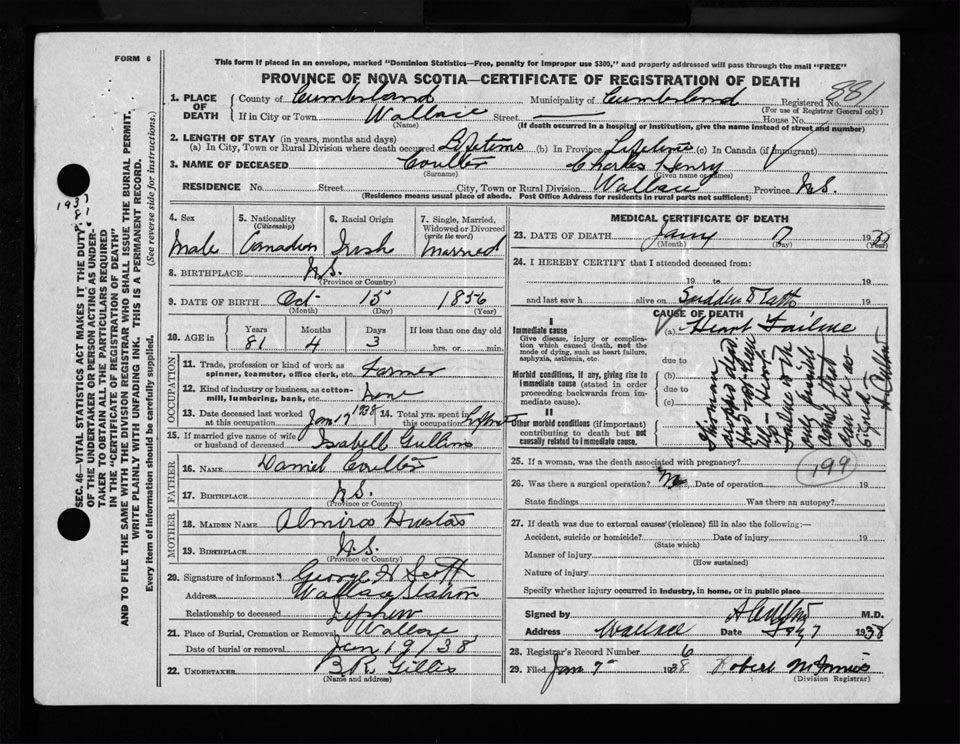 FORM 6
This form if placed in an envelope, marked "Dominion Statistics—Free, penalty for improper use $300," and properly addressed will pass through the mail "FREE"
PROVINCE OF NOVA SCOTIA—CERTIFICATE OF REGISTRATION OF DEATH
881
1. PLACE OF DEATH County of Cumberland Municipality of Cumberland Registered No.
(For use of Registrar General only)
If in City or Town Wallace Street House No.
(Name) (If death occurred in a hospital or institution, give the name instead of street and number)
2. LENGTH OF STAY (in years, months and days)
(a) In City, Town or Rural Division where death occurred Lifetime (b) In Province Lifetime (c) In Canada (if immigrant)
3. NAME OF DECEASED Coulter Charles Henry
(Surname) (Given name or names)
RESIDENCE No. Street City, Town or Rural Division Wallace Province N.S.
(Residence means usual place of abode. Post Office Address for residents in rural parts not sufficient)
4. Sex Male
5. Nationality (Citizenship) Canadian
6. Racial Origin Irish
7. Single, Married, Widowed or Divorced (write the word) Married
8. BIRTHPLACE N.S.
(Province or Country)
9. DATE OF BIRTH Oct 15 1856
(Month) (Day) (Year)
10. AGE in Years Months Days If less than one day old
81 4 3 hrs. or min.
OCCUPATION
11. Trade, profession or kind of work as spinner, teamster, office clerk, etc. Farmer
12. Kind of industry or business, as cotton-mill, lumbering, bank, etc.
13. Date deceased last worked at this occupation 1938
14. Total yrs. spent in this occupation
15. If married give name of wife or husband of deceased Isabell
FATHER
16. NAME Daniel Coulter
17. BIRTHPLACE N.S.
(Province or Country)
MOTHER
18. MAIDEN NAME Almira
19. BIRTHPLACE N.S.
(Province or Country)
20. Signature of informant George H Scott
Address Wallace Station
Relationship to deceased Nephew
21. Place of Burial, Cremation or Removal Wallace
Date of burial or removal Jan 19/38
22. UNDERTAKER B R Gillis
(Name and address)
MEDICAL CERTIFICATE OF DEATH
23. DATE OF DEATH 7 19
(Month) (Day) (Year)
24. I HEREBY CERTIFY that I attended deceased from:
19 to 19
and last saw h alive on Sudden Death 19
CAUSE OF DEATH
I
Immediate cause (a) Heart Failure
Give disease, injury or complication which caused death, not the mode of dying, such as heart failure, asphyxia, asthenia, etc.
due to
Morbid conditions, if any, giving rise to immediate cause (stated in order proceeding backwards from immediate cause).
(b)
due to
(c)
II
Other morbid conditions (if important) contributing to death but not causally related to immediate cause.
25. If a woman, was the death associated with pregnancy?
199
26. Was there a surgical operation? No Date of operation 19
State findings Was there an autopsy?
27. If death was due to external causes (violence) fill in also the following:—
Accident, suicide or homicide? Date of injury 19
(State which)
Manner of injury
(How sustained)
Nature of injury
Specify whether injury occurred in industry, in home, or in public place
Signed by M.D.
Address Wallace Date 7 1938
28. Registrar's Record Number 6
29. Filed Jan 7th 1938 Robert
(Division Registrar)
SEC. 46—VITAL STATISTICS ACT MAKES IT THE DUTY OF THE UNDERTAKER OR PERSON ACTING AS UNDERTAKER TO OBTAIN ALL THE PARTICULARS REQUIRED IN THE "CERTIFICATE OF REGISTRATION OF DEATH"
AND TO FILE THE SAME WITH THE DIVISION REGISTRAR WHO SHALL ISSUE THE BURIAL PERMIT.
WRITE PLAINLY WITH UNFADING INK. THIS IS A PERMANENT RECORD.
Every item of information should be carefully supplied. (See reverse side for instructions.)